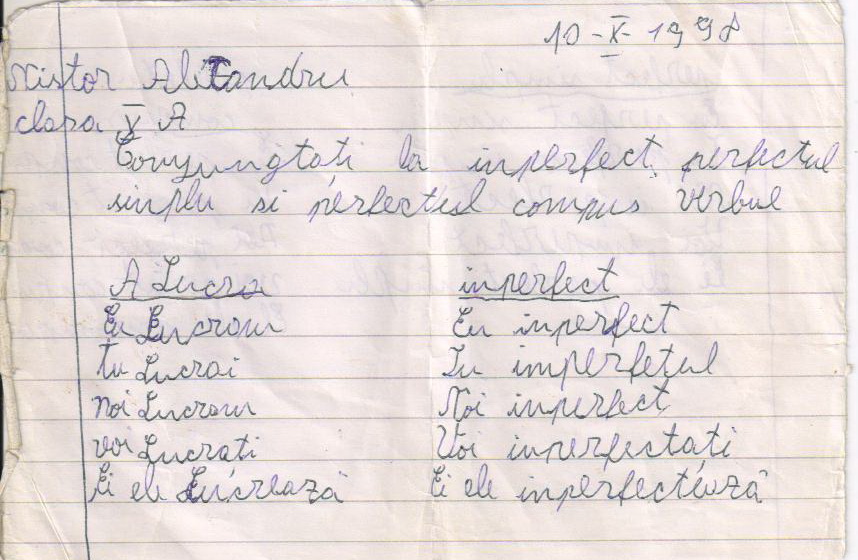 10-X-1998
Nistor Alexandru
clasa X A
Conjungtati la inperfect, perfectul
sinplu si perfectul compus verbul
A Lucra inperfect
Eu Lucram Eu inperfect
tu Lucrai Tu imperfetul
noi Lucram Noi inperfect
voi Lucrati Voi inperfectati
Ei ele Lucrează Ei ele inperfectează